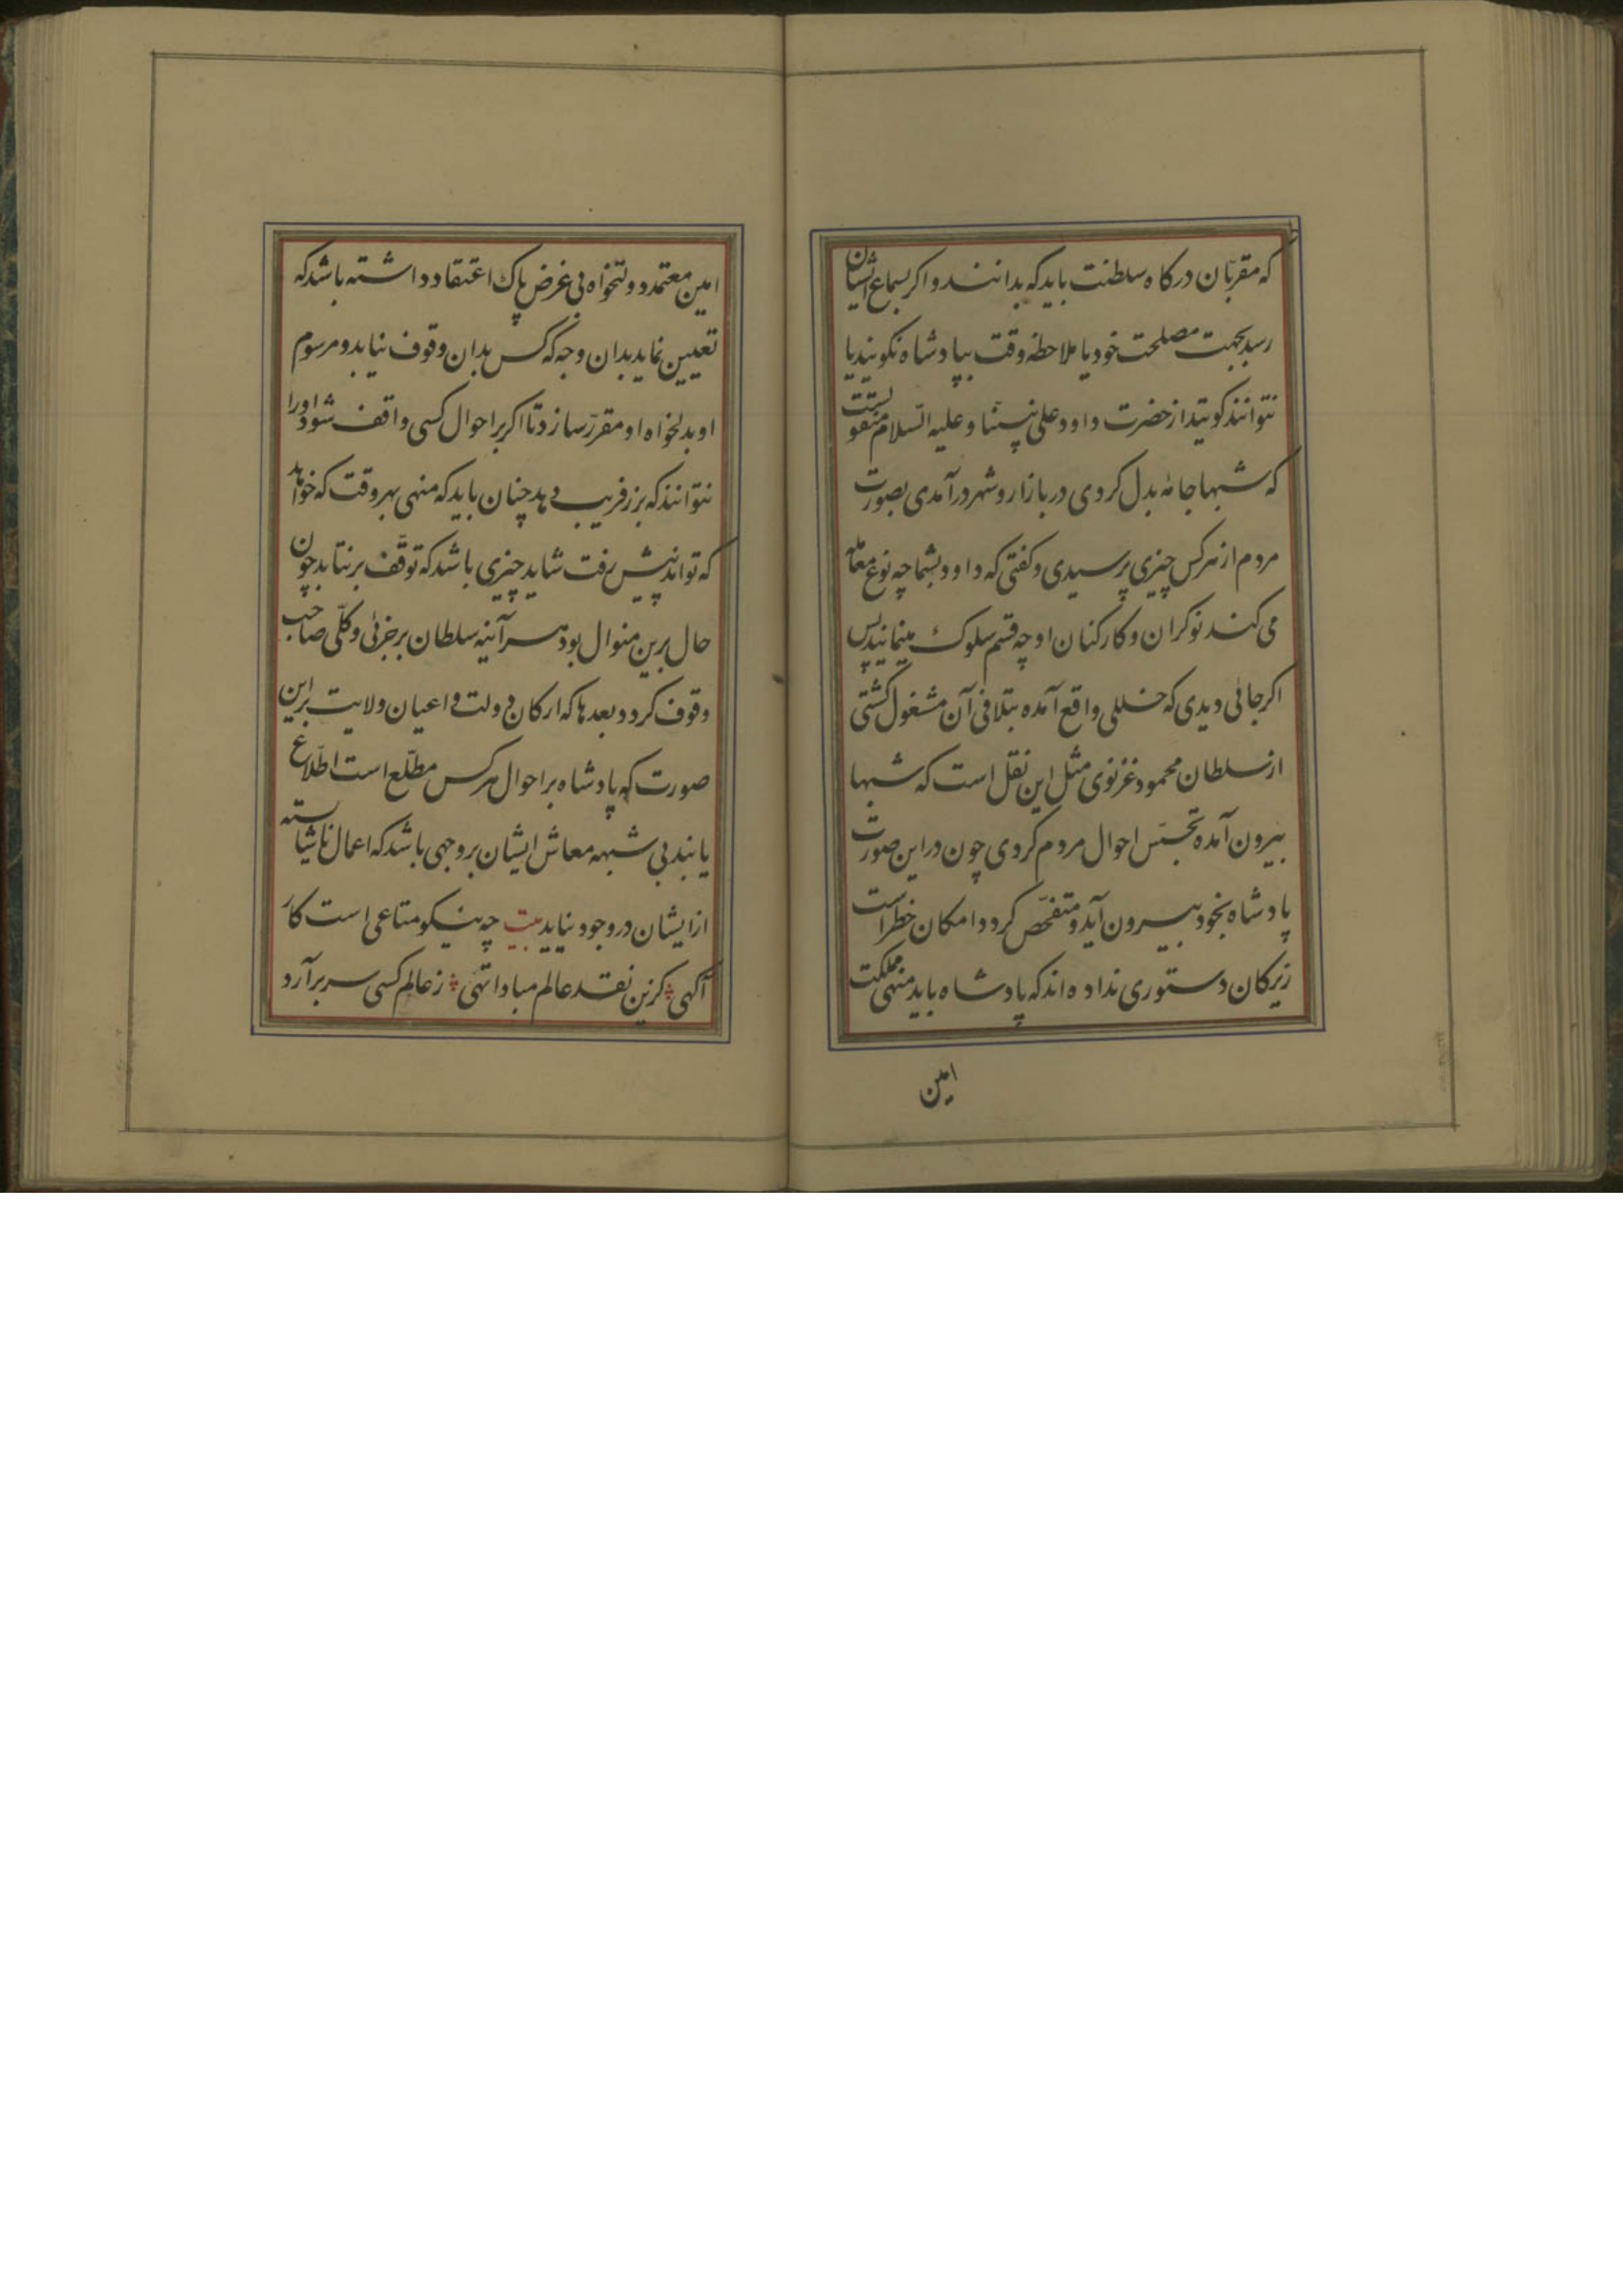 که مقربّان درکاه سلطنت باید که بدانند و اکر بسماع ایشان
رسد بجهت مصلحت خود یا ملاحظه وقت بپادشاه نکویند یا
نتوانند کویند از حضرت داود علی نبیّنا و علیه السّلام منقولست
که شبها جامه بدل کردی در بازار و شهر درآمدی بصورت
مردم از هرکس چیزی پرسیدی و کفتی که داود بشما چه نوع معامله
می کند نوکران و کارکنان او چه قسم سلوک مینمایند پس
اکر جائی دیدی که خللی واقع آمده بتلافی آن مشغول کشتی
از سلطان محمود غزنوی مثل این نقل است که شبها
بیرون آمده تجسّس احوال مردم کردی چون در این صورت
پادشاه بخود بیرون آید و متفحّص کردد امکان خطر است
زیرکان دستوری نداده اند که پادشاه باید منهی مملکت
امین
امین معتمد دولتخواه بی غرض پاک اعتقاد داشته باشد که
تعیین نماید بدان وجه که کس بدان وقوف نیابد و مرسوم
او بدلخواه او مقرّر سازد تا اکر بر احوال کسی واقف شود او را
نتوانند که بزر فریب دهد چنان باید که منهی بهر وقت که خواهد
که تواند پیش رفت شاید چیزی باشد که توقّف برنتابد چون
حال برین منوال بود هر آینه سلطان بر جزئی و کلّی صاحب
وقوف کردد و بعدها که ارکان دولت و اعیان ولایت براین
صورت که پادشاه بر احوال هرکس مطلّع است اطّلاع
یابند بی شبهه معاش ایشان بر وجهی باشد که اعمال ناشایسته
از ایشان در وجود نیاید بیت چه نیکو متاعی است کار
آکهی کزین نقد عالم مبادا تهی ز عالم کسی سر برآرد